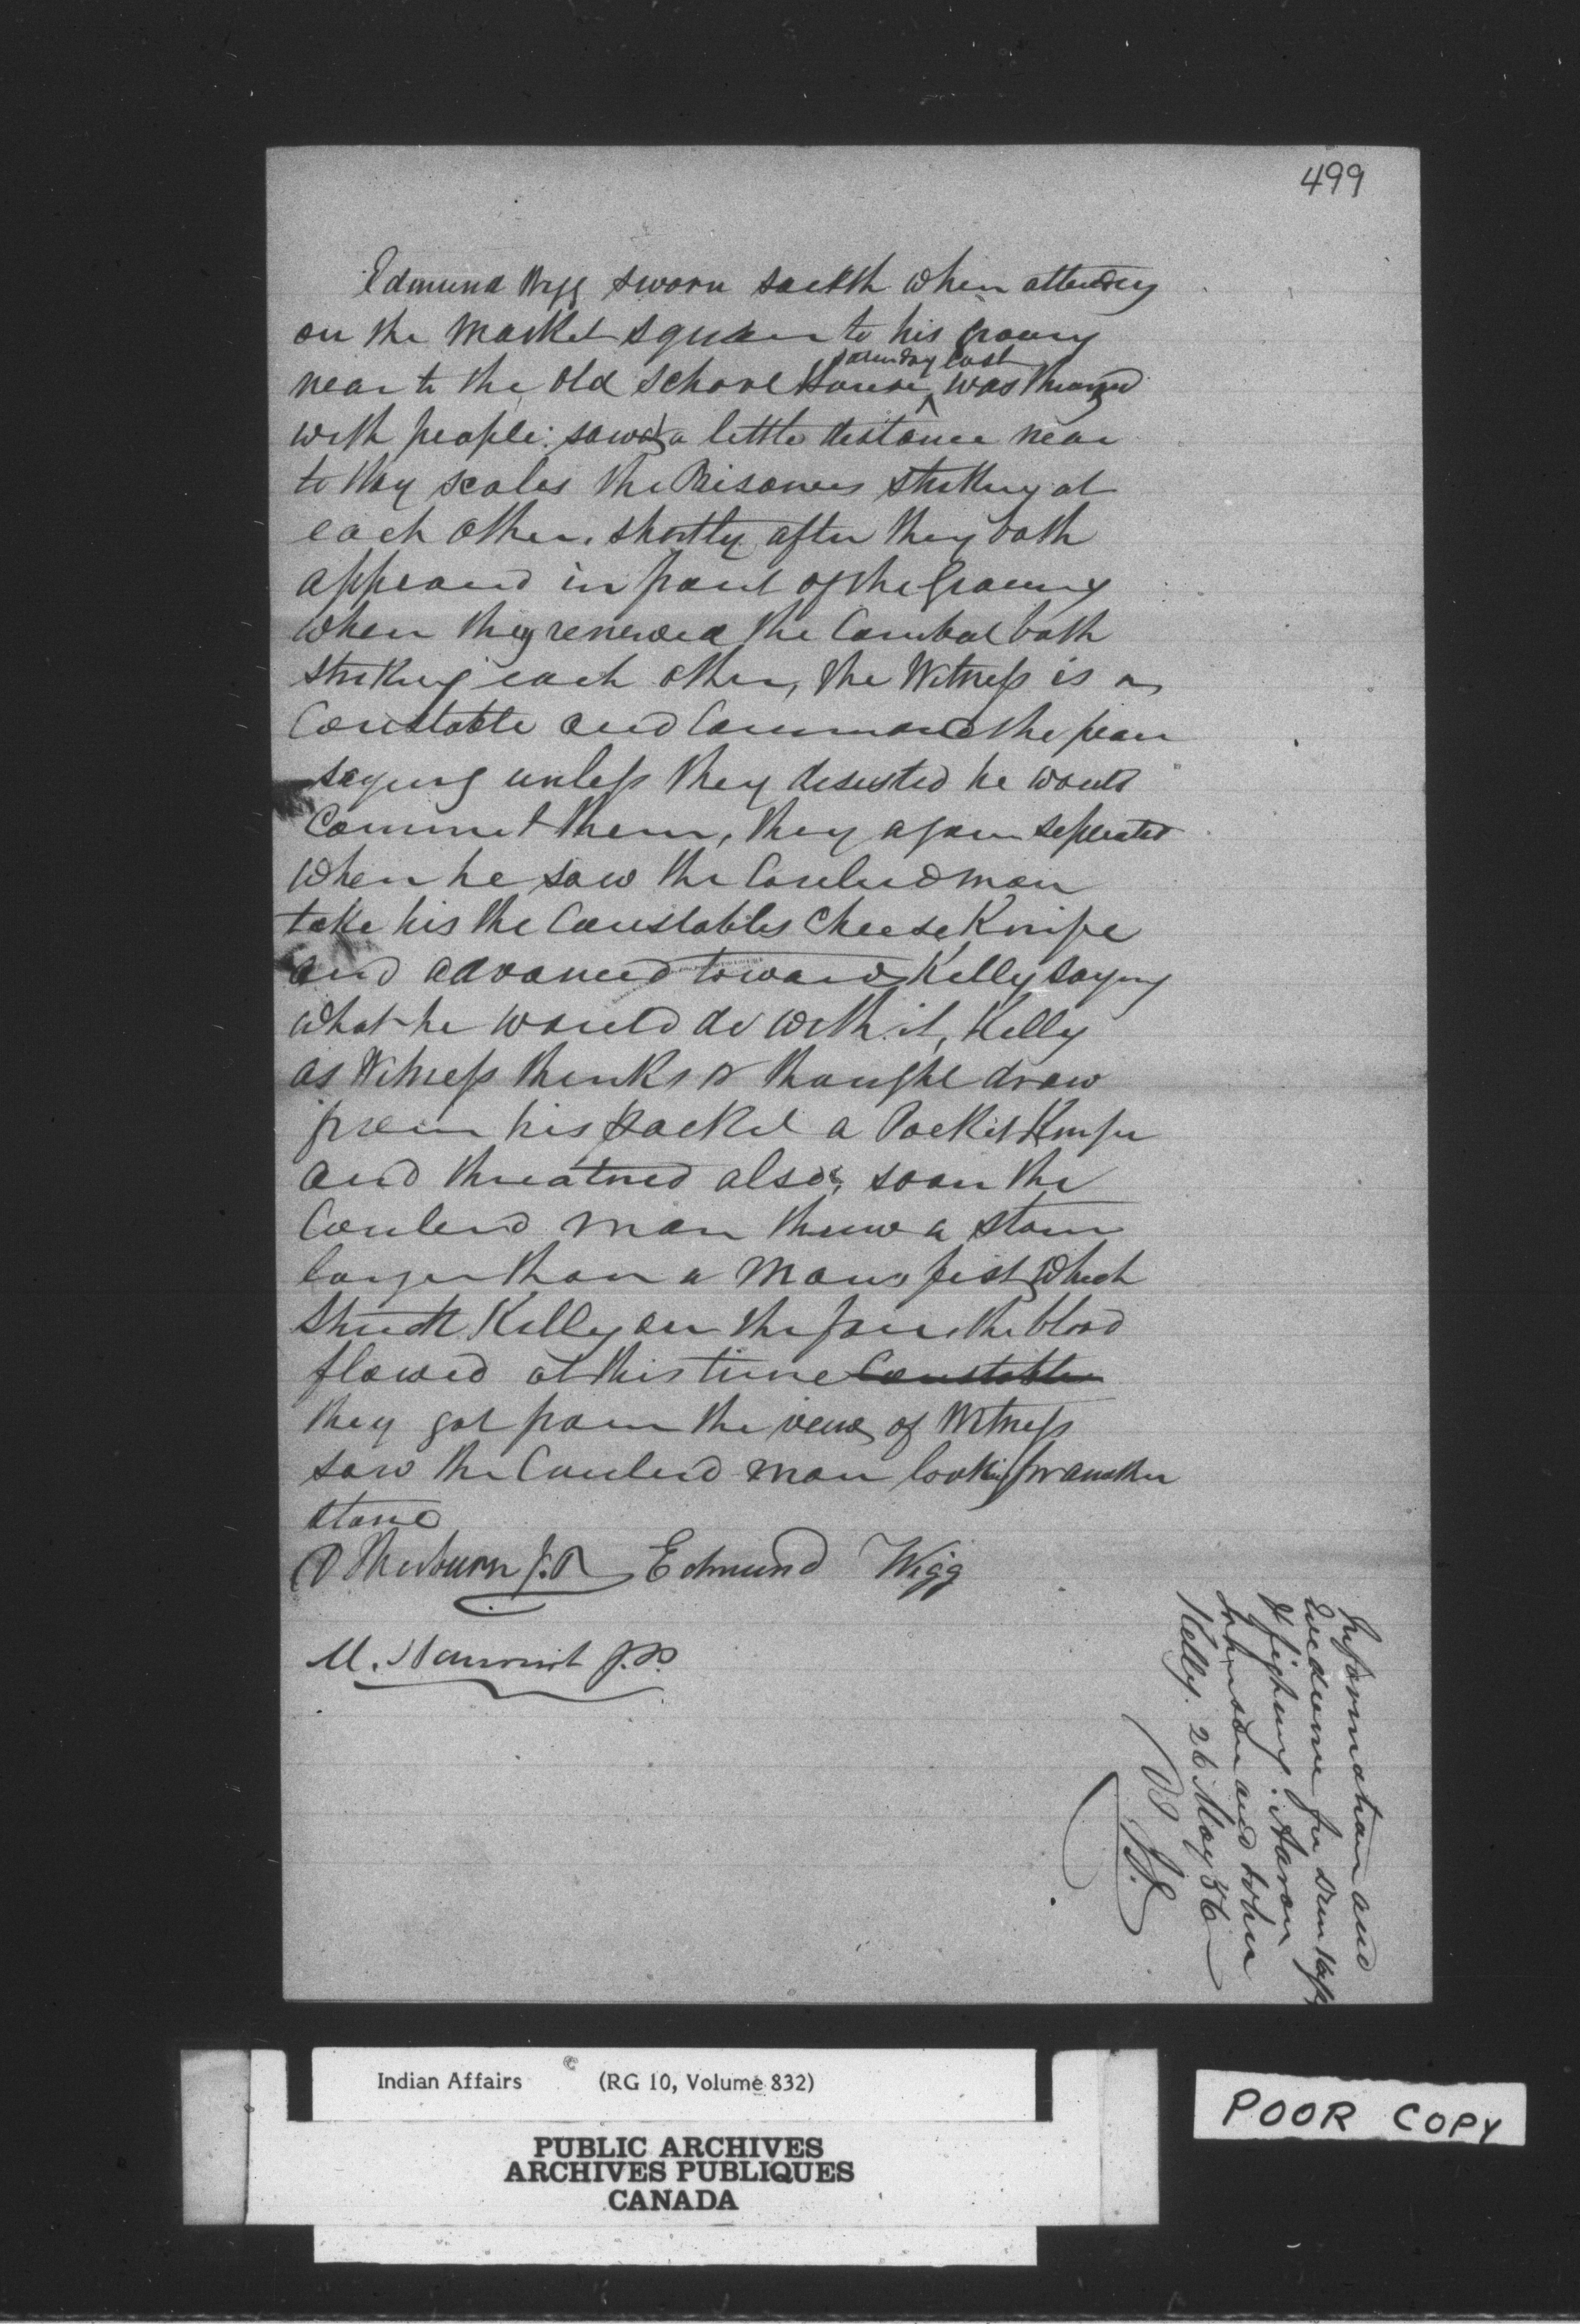 499
Edmund Wigg sworn saithh when attending
on the Market Square to his Grocery
near to the old School House ^ Saturday last was thronged
with people: saw at a little distance near
to Hay scales the Prisoners striking at
each other. shortly after they both
appeard in front of the Grocery
when they renewed the Combat both
striking each other, the Witness is a
Constable and Command the peace
saying unless they desisted he would
Commit them, they again seperated
when he saw the Coulerd man
take his the Constables Cheese Knife
and advanced towards Kelly saying
what he would do with it, Kelly
as Witness thinks & thought draw
from his pocket a Pocket Knife
and threatned also, soon the
Coulerd man threw a stone
larger than a Mans fist which
Struck Kelly on the face the blood
flowed at this time Constable
they got from the view of Witness
saw the Coulerd man looking for another
stone
D Thorburn J.P. Edmund Wigg
M. Harcourt J.P.
Information and
Evidence for Drunkss
& fighting. Aaron
Johnson and John
Kelly. 26 May 56
Indian Affairs (RG 10, Volume 832)
PUBLIC ARCHIVES
ARCHIVES PUBLIQUES
CANADA
POOR COPY